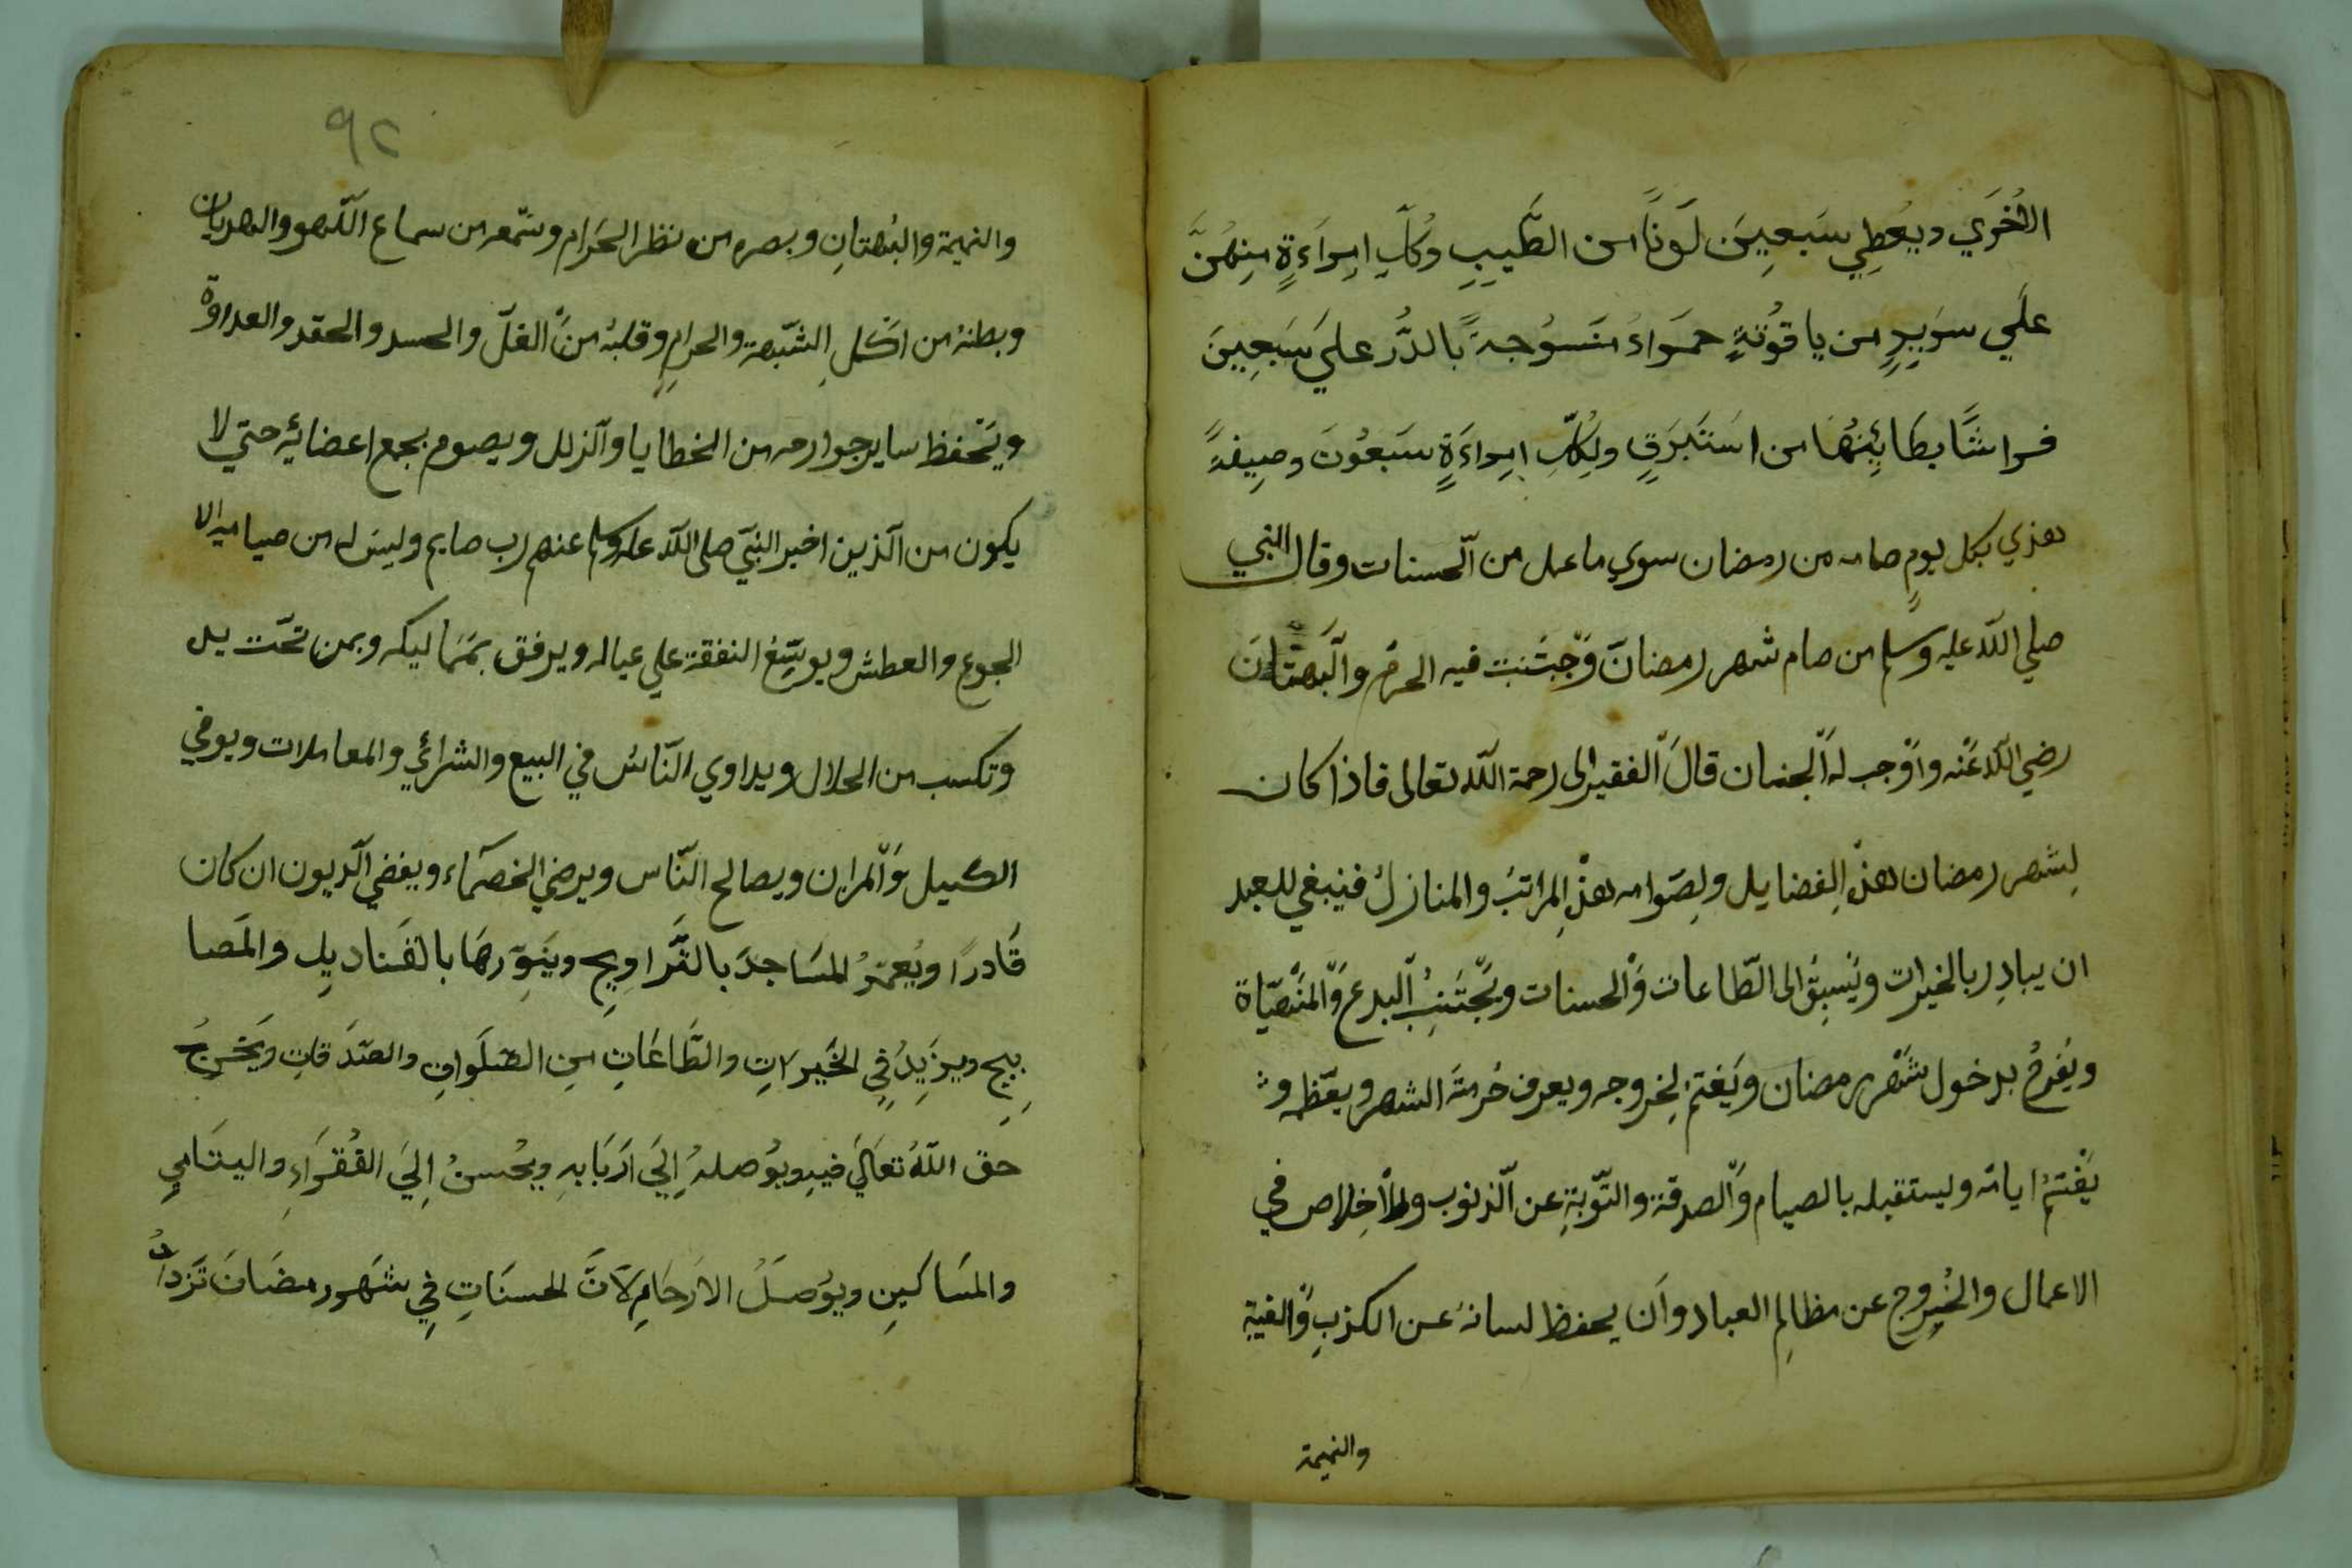 الأُخْرَي ويُعْطِي سَبعِينَ لَونًا من الطِّيبِ وكُلِّ امِرَاءَةٍ مِنهُنَّ
عَلَي سَرِيرٍ من ياقُوتَةٍ حمَراءَ مَنسُوجةً بالدُّر علَي سَبعِينَ
فراشًا بطَائِنُهَا من استَبرَقٍ ولِكلّ امِراءَةٍ سَبعُونَ وصِيفةً
هذي بكل يومٍ صامه من رمضان سوي ما عمل من الحسنات وقال النبي
صلي الله عليه وسلم من صام شهر رمضانَ وَجْتَنبت فيه الحرمُ والبهتانَ
رضي الله عَنْه واوْجب لهُ الجنان قالَ الفقير الى رحمة الله تعالى فاذا كان
لِشهر رمضان هذهِ الفضايل ولِصَوامه هذهِ المراتبَ والمنازلُ فينبغي للعبد
ان يبادِر بالخيرات ويَسبِقُ الى الطّاعات وَالحسنات ويجْتَنِبُ البدع وَالمنْهيّاة
ويَفرحُ بدخول شَهر رمضان ويَغتمْ لِخروجه ويعرف حُرمتَ الشهر ويعّظمه و
يَغْتمُ ايامهُ وليستقبله بالصيام وَالصدقة والتّوبَةِ عن الذنوب والأخِلاص في
الاعمال والخُروج عن مظالِم العباد وَان يحفظ لسانهُ عن الكذبِ وَالغيبة
والنميمة
٩٢
والنميمة والبُهتانِ وبصره من نظر الحَرام وسَمْعه من سماع اللّهو والهديان
وبطنهُ من اَكلِ الشّبهة والحرامِ وقلبهُ منَ الغلّ والحسد والحقد والعداوة
ويَحْفظ ساير جوارحه من الخطايا والزلل ويصوم بجمع اعضائِه حتي لا
يكون من الذين اخبر النبَي صلى الله عليه وسلم عنهم رب صايم وليسَ له من صيامه الا
الجوع والعطش ويوسّع النفقة علي عياله ويرفق بمَمَاليكه وبمن تحَت يده
وتكسب من الحلال ويداوي النّاسُ في البيع والشرائي والمعاملات ويوفي
الكيل وَالمزان ويصالح النّاس ويرضي الخصَماء ويفضي الديون ان كان
قَادرًا ويُعمّرُ المسَاجدَ بالتَّراوِيحِ وينَوِّرهَا بالقَنادِيِل والمَصا
بِيحِ ويزَيِدُ فِي الخَيراتِ والطَّاعَاتِ مِنِ الصَّلَواتِ والصَّدَقاتِ ويَخْرِجُ
حَق اللهُ تعَالَي فيهِ ويوُصلهُ اِلَيَ اَرَبَابهِ ويحُسنُ اِلَيَ الفُقَراءِ واليتَامِي
والمسَاكينِ ويوُصَلُ الارَحَامِ لاَنَّ الحسنَاتِ فِي شَهر رمضَانَ تَزدادُ